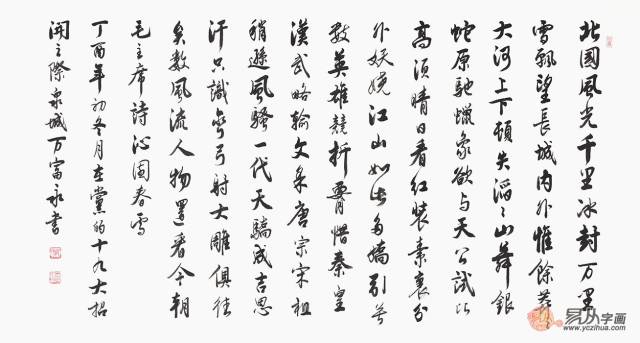 北國風光千里冰封万里
雪飘望長城内外惟餘莽〻
大河上下頓失滔〻山舞銀
蛇原馳蠟象欲与天公試比
高須晴日看红装素裹分
外妖嬈江山如此多嬌引无
数英雄競折腰惜秦皇
漢武略輸文采唐宗宋祖
稍遜風騷一代天驕成吉思
汗只識彎弓射大雕俱往
矣数風流人物還看今朝
毛主席詩沁園春雪
丁酉年初冬月在黨的十九大招
開之際泉城万富永書
易从字画
www.yczihua.com